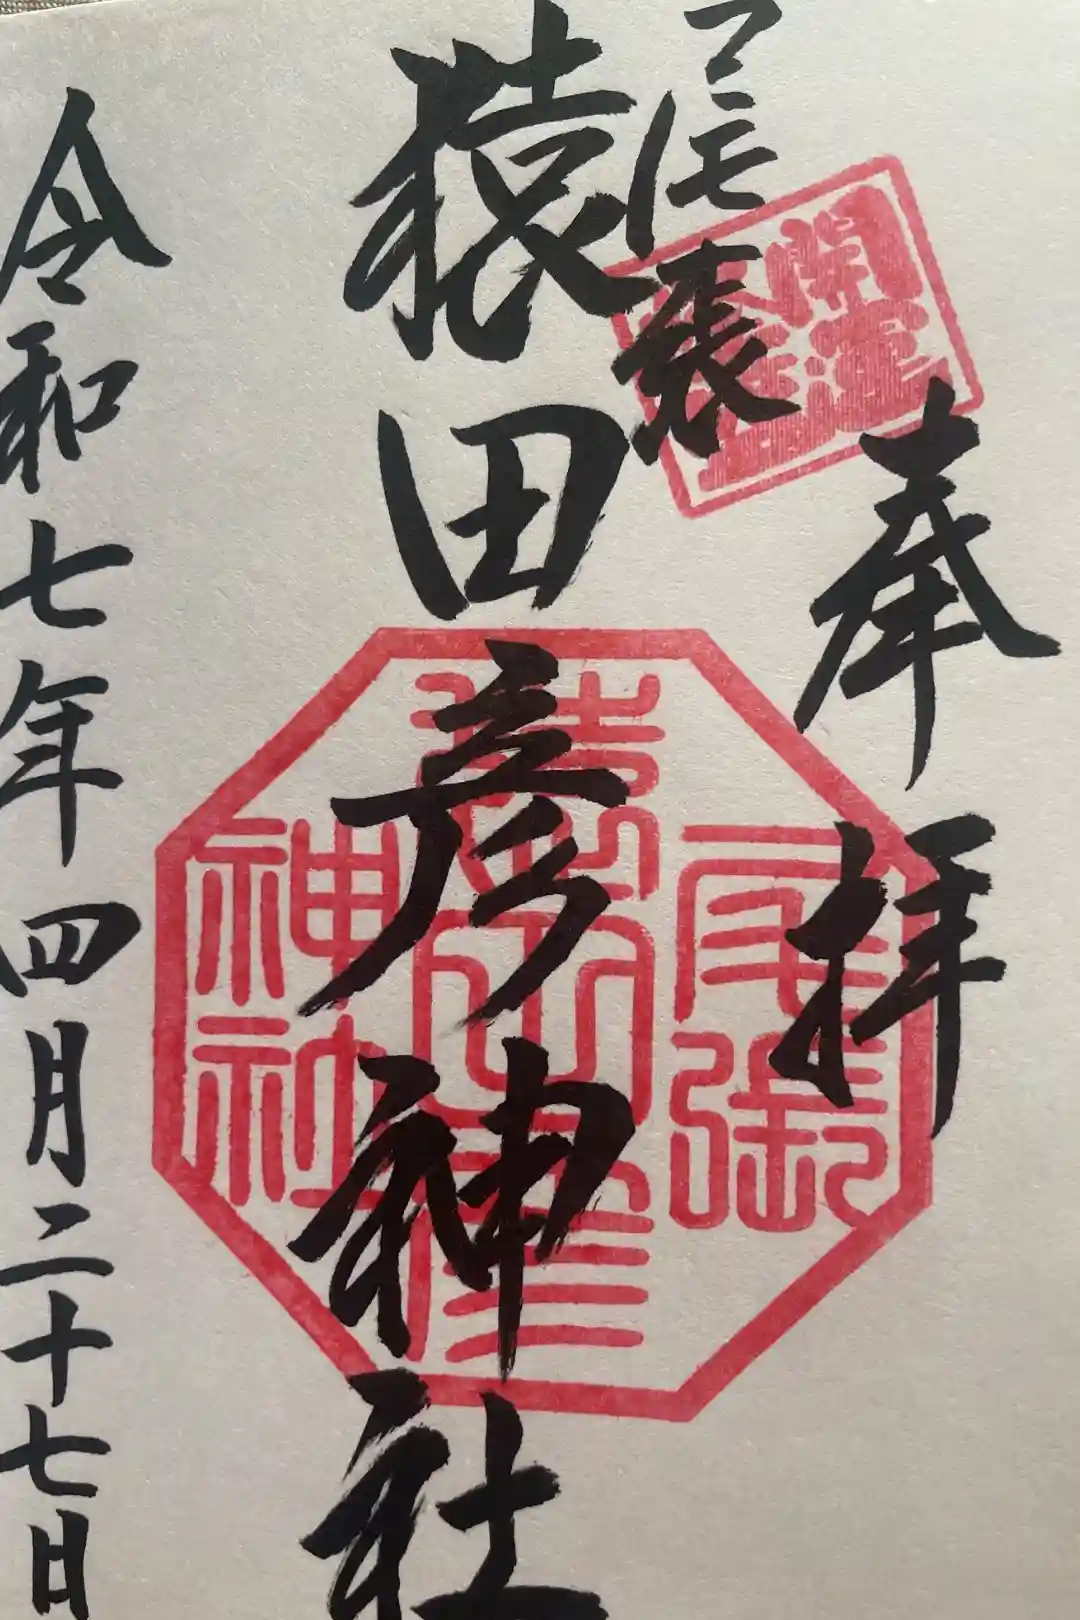 奉拝
尾張
猿田彦神社
令和七年四月二十七日
尾張
猿田彦
神社